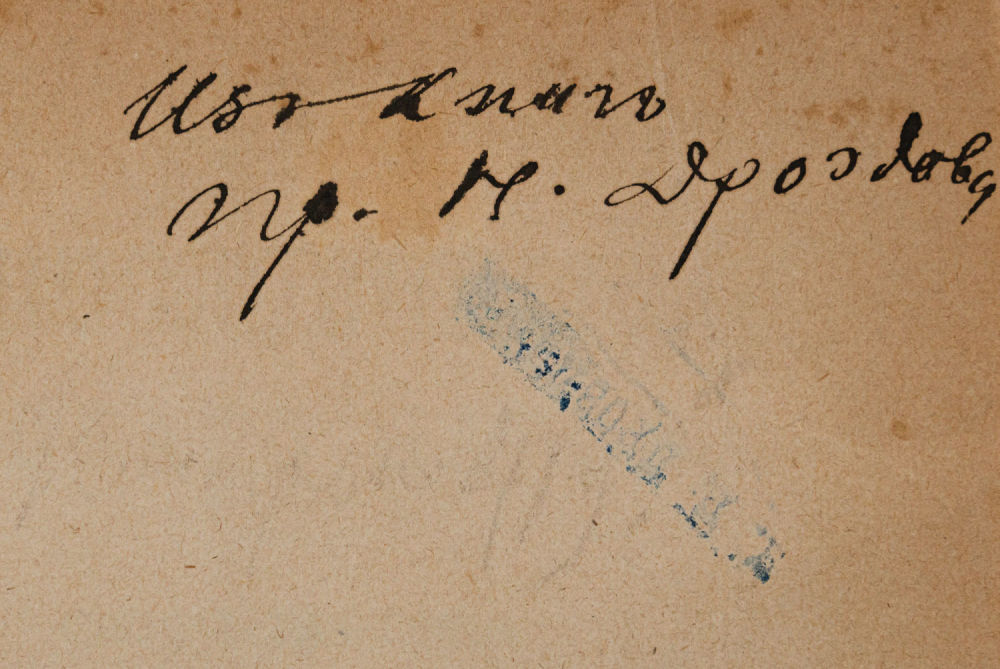 Изъ книгъ
пр. Н. Дроздова